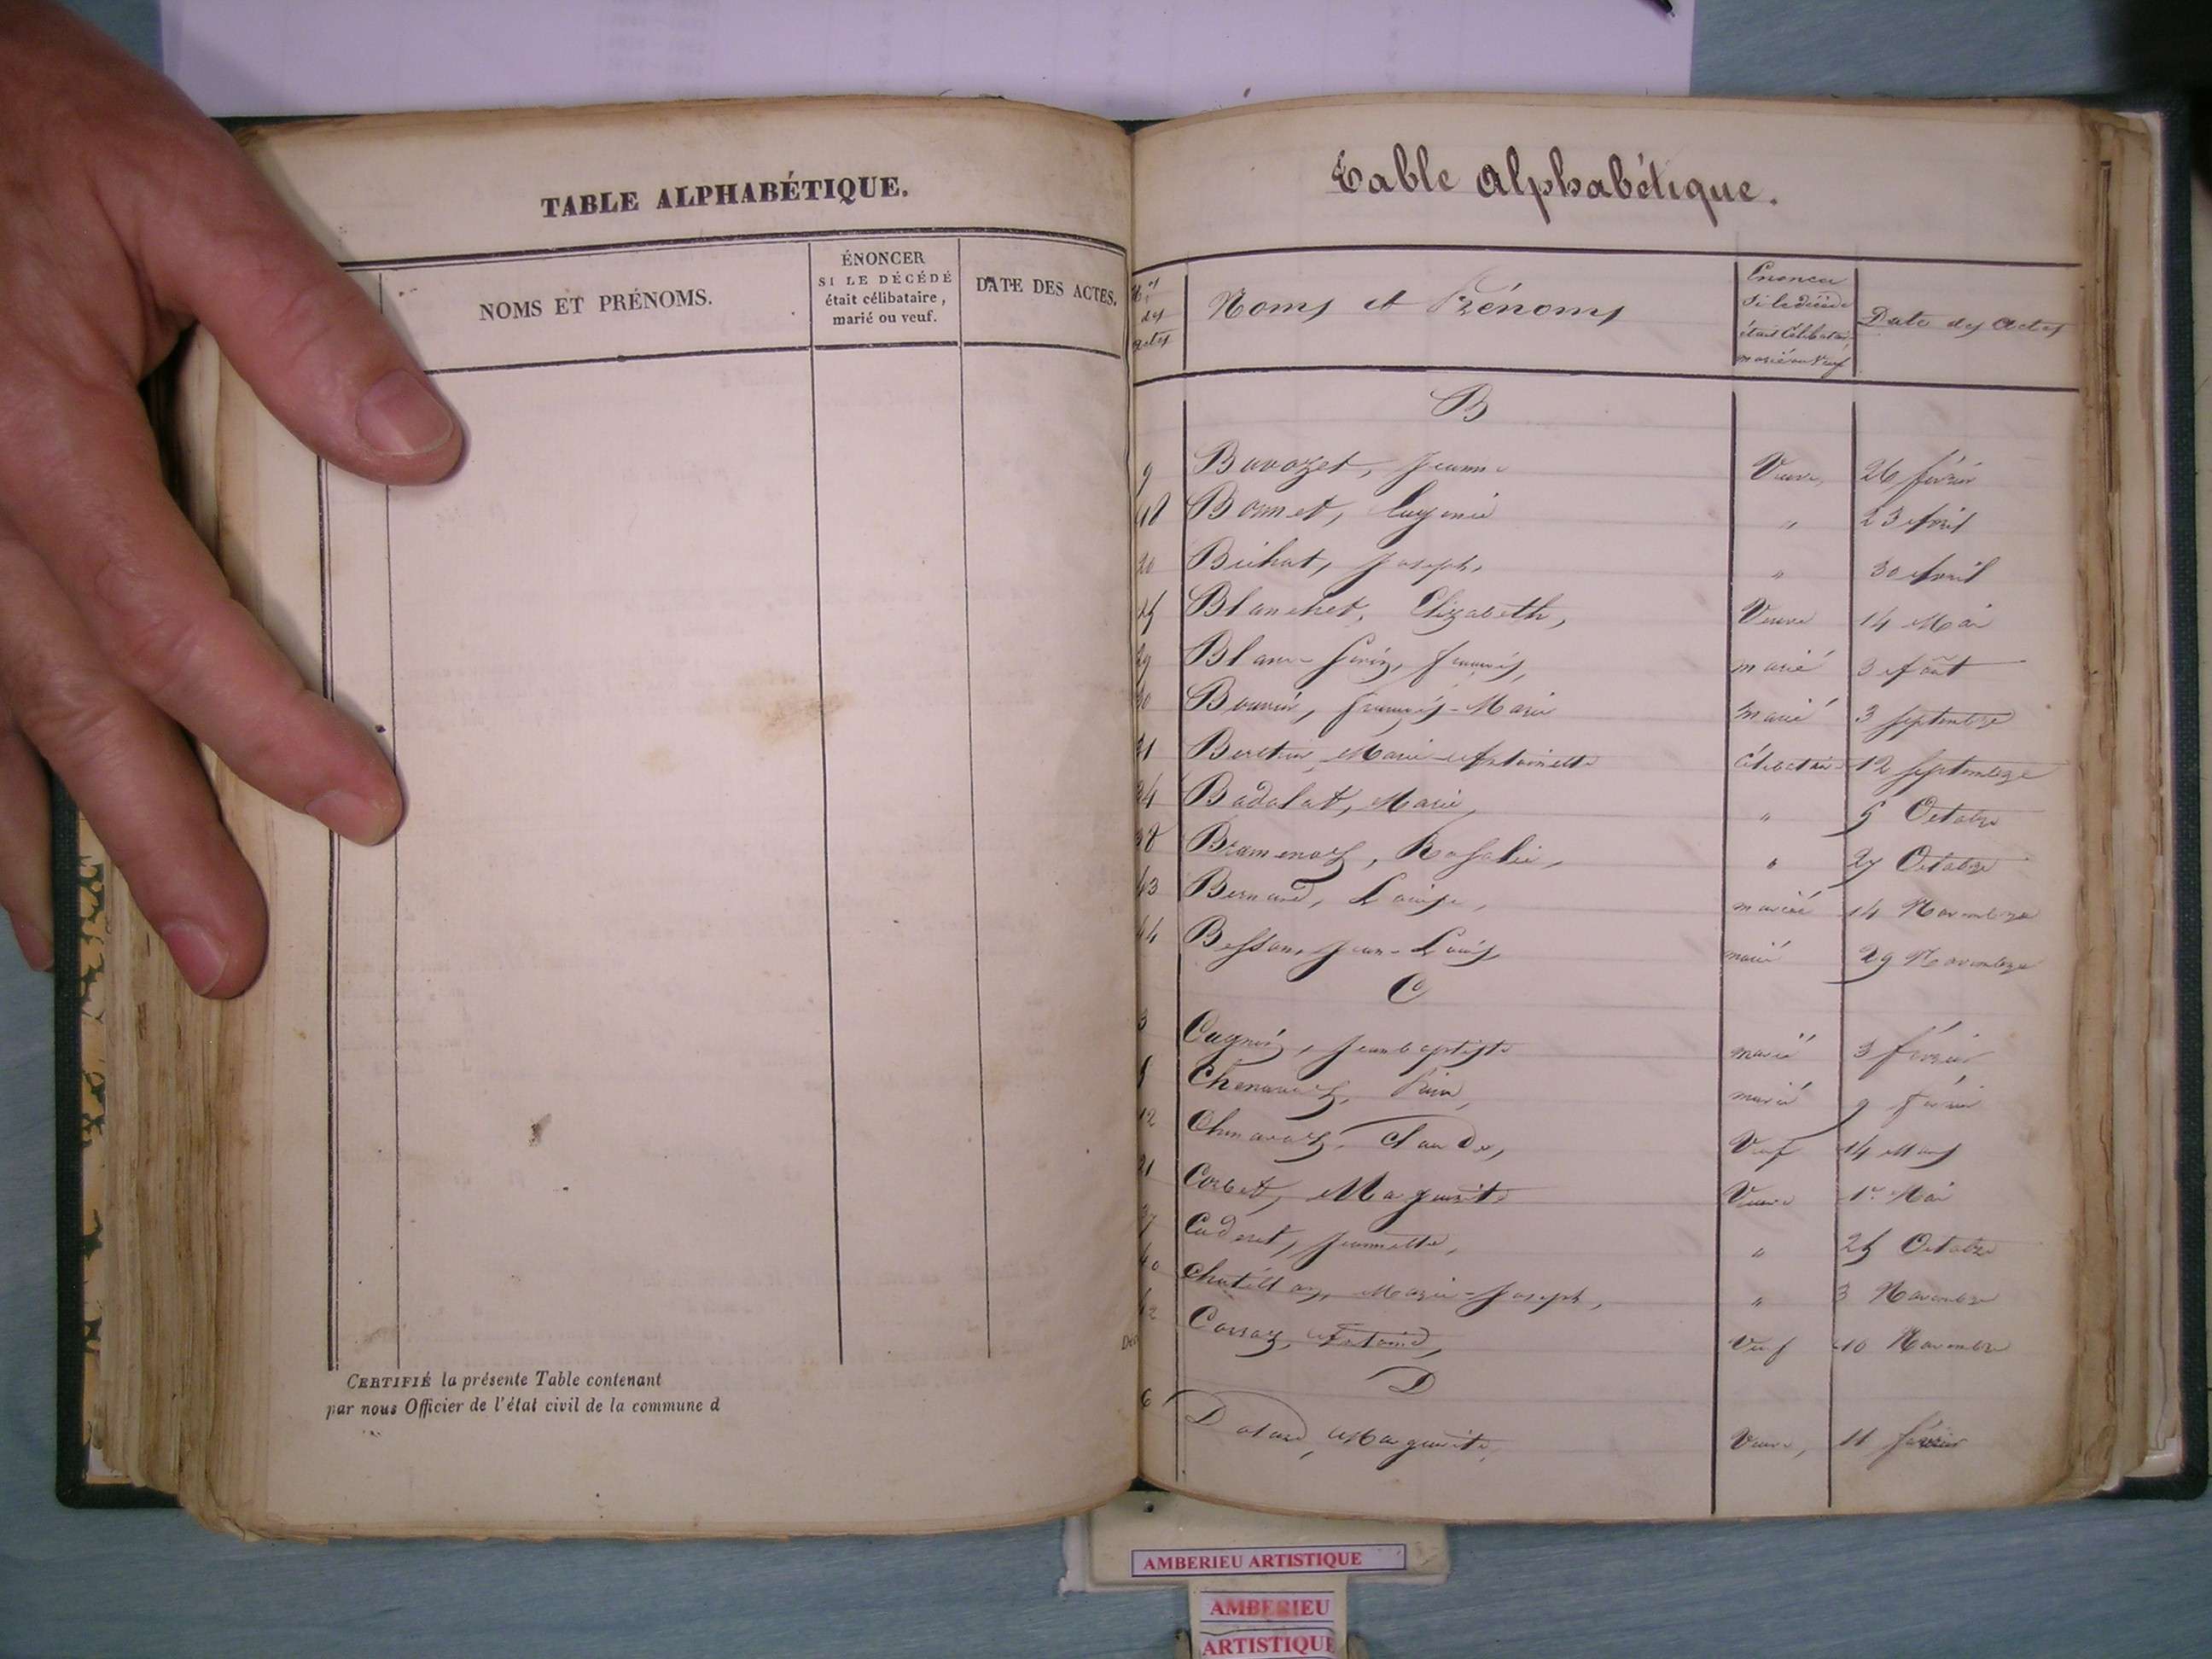 TABLE ALPHABÉTIQUE.
NOMS ET PRÉNOMS.
ÉNONCER
SI LE DÉCÉDÉ
était célibataire,
marié ou veuf.
DATE DES ACTES.
CERTIFIÉ la présente Table contenant
par nous Officier de l'état civil de la commune d
Table Alphabétique.
Nos
des
Actes
Noms et Prénoms
Enoncer
Si le décédé
était Célibataire
marié ou Veuf
Date des Actes
B
9 Bavozet, Jeanne Veuve, 26 février
18 Bonnet, Eugénie " 23 Avril
20 Bichat, Joseph, " 30 Avril
25 Blanchet, Elizabeth, Veuve 14 Mai
29 Blanc- François, marié 3 Août
30 François-Marie marié 3 Septembre
31 Marie-Antoinette célibataire 12 Septembre
34 Badolat, Marie, " 5 Octobre
38 Bramenoz, Rosalie, " 27 Octobre
43 Bernard, Louise, mariée 14 Novembre
44 Besson, Jean-Louis, marié 29 Novembre
C
3 Jean baptiste marié 3 février
5 Chenavaz, marié 9 février
12 Chenavaz, Claude, Veuf 14 Mars
21 Corbet, Marguerite Veuve 1er Mai
37 Caderet, Jeannette, " 25 Octobre
40 Chatillon, Marie-Joseph, " 3 Novembre
42 Antoine, Veuf 10 Novembre
D
6 Marguerite, Veuve, 11 février
AMBERIEU ARTISTIQUE
AMBERIEU
ARTISTIQUE